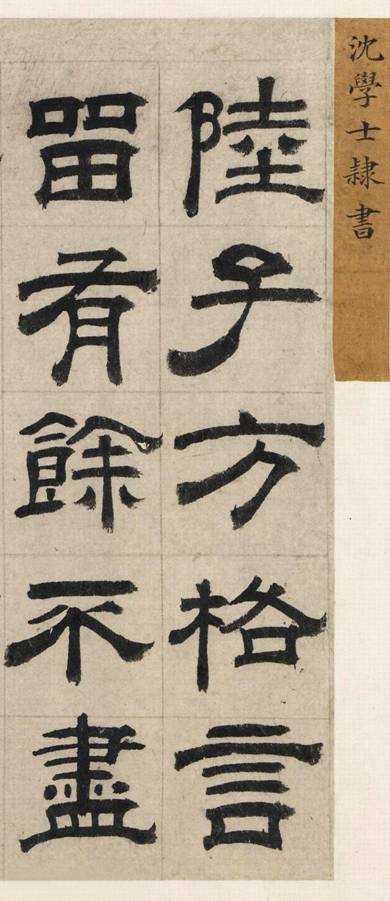 沈學士隷書
陸子方格言
畱有餘不盡